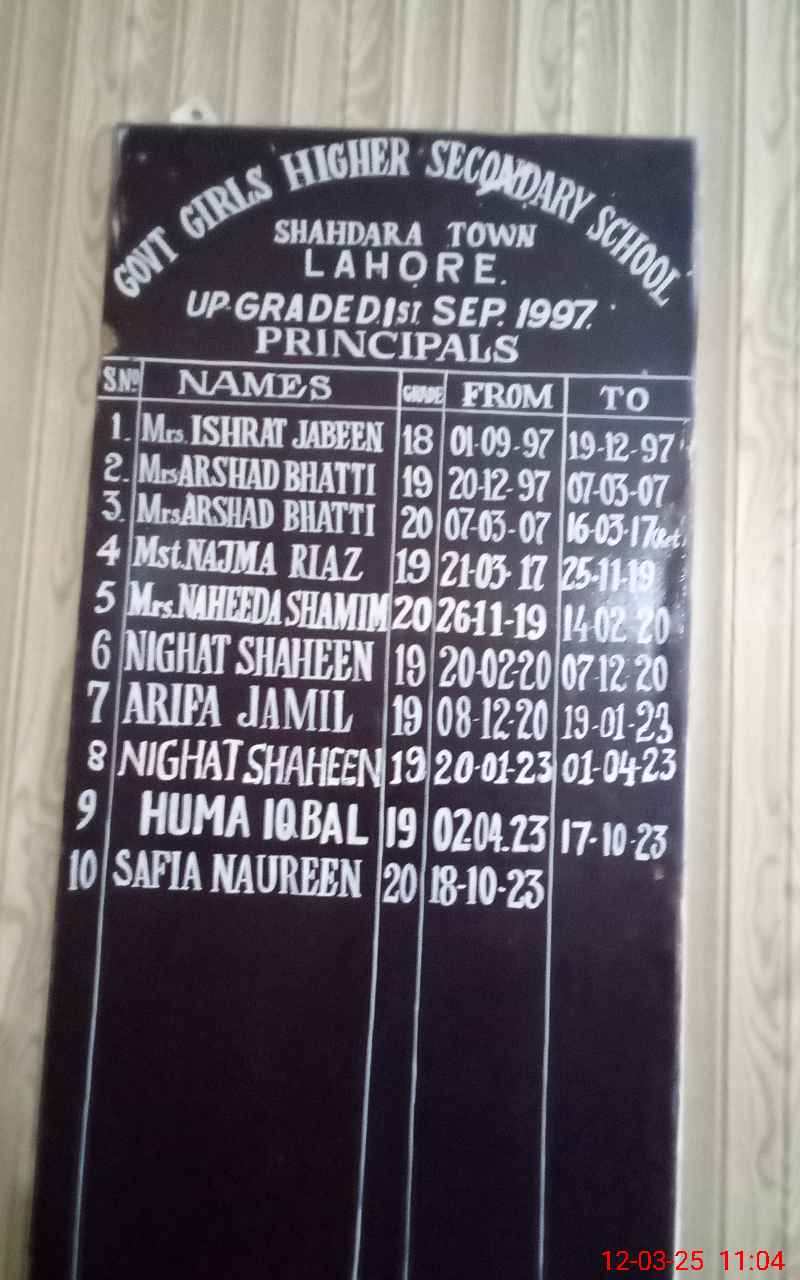 GOVT GIRLS HIGHER SECONDARY SCHOOL
SHAHDARA TOWN
LAHORE.
UP-GRADED.1ST. SEP. 1997.
PRINCIPALS
S.No NAMES GRADE FROM TO
1. Mrs. ISHRAT JABEEN 18 01-09-97 19-12-97
2. Mrs ARSHAD BHATTI 19 20-12-97 07-03-07
3. Mrs ARSHAD BHATTI 20 07-03-07 16-03-17
4 Mst. NAJMA RIAZ 19 21-03-17 25-11-19
5 Mrs. NAHEEDA SHAMIM 20 26-11-19 14-02-20
6 NIGHAT SHAHEEN 19 20-02-20 07-12-20
7 ARIFA JAMIL 19 08-12-20 19-01-23
8 NIGHAT SHAHEEN 19 20-01-23 01-04-23
9 HUMA IQBAL 19 02-04-23 17-10-23
10 SAFIA NAUREEN 20 18-10-23
12-03-25 11:04